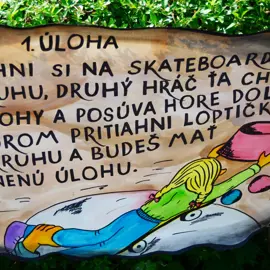 1. ÚLOHA
HNI SI NA SKATEBOARD
UHU, DRUHÝ HRÁČ ŤA CH
OHY A POSÚVA HORE DOL
OROM PRITIAHNI LOPTIČK
RUHU A BUDEŠ MAŤ
NENÚ ÚLOHU.